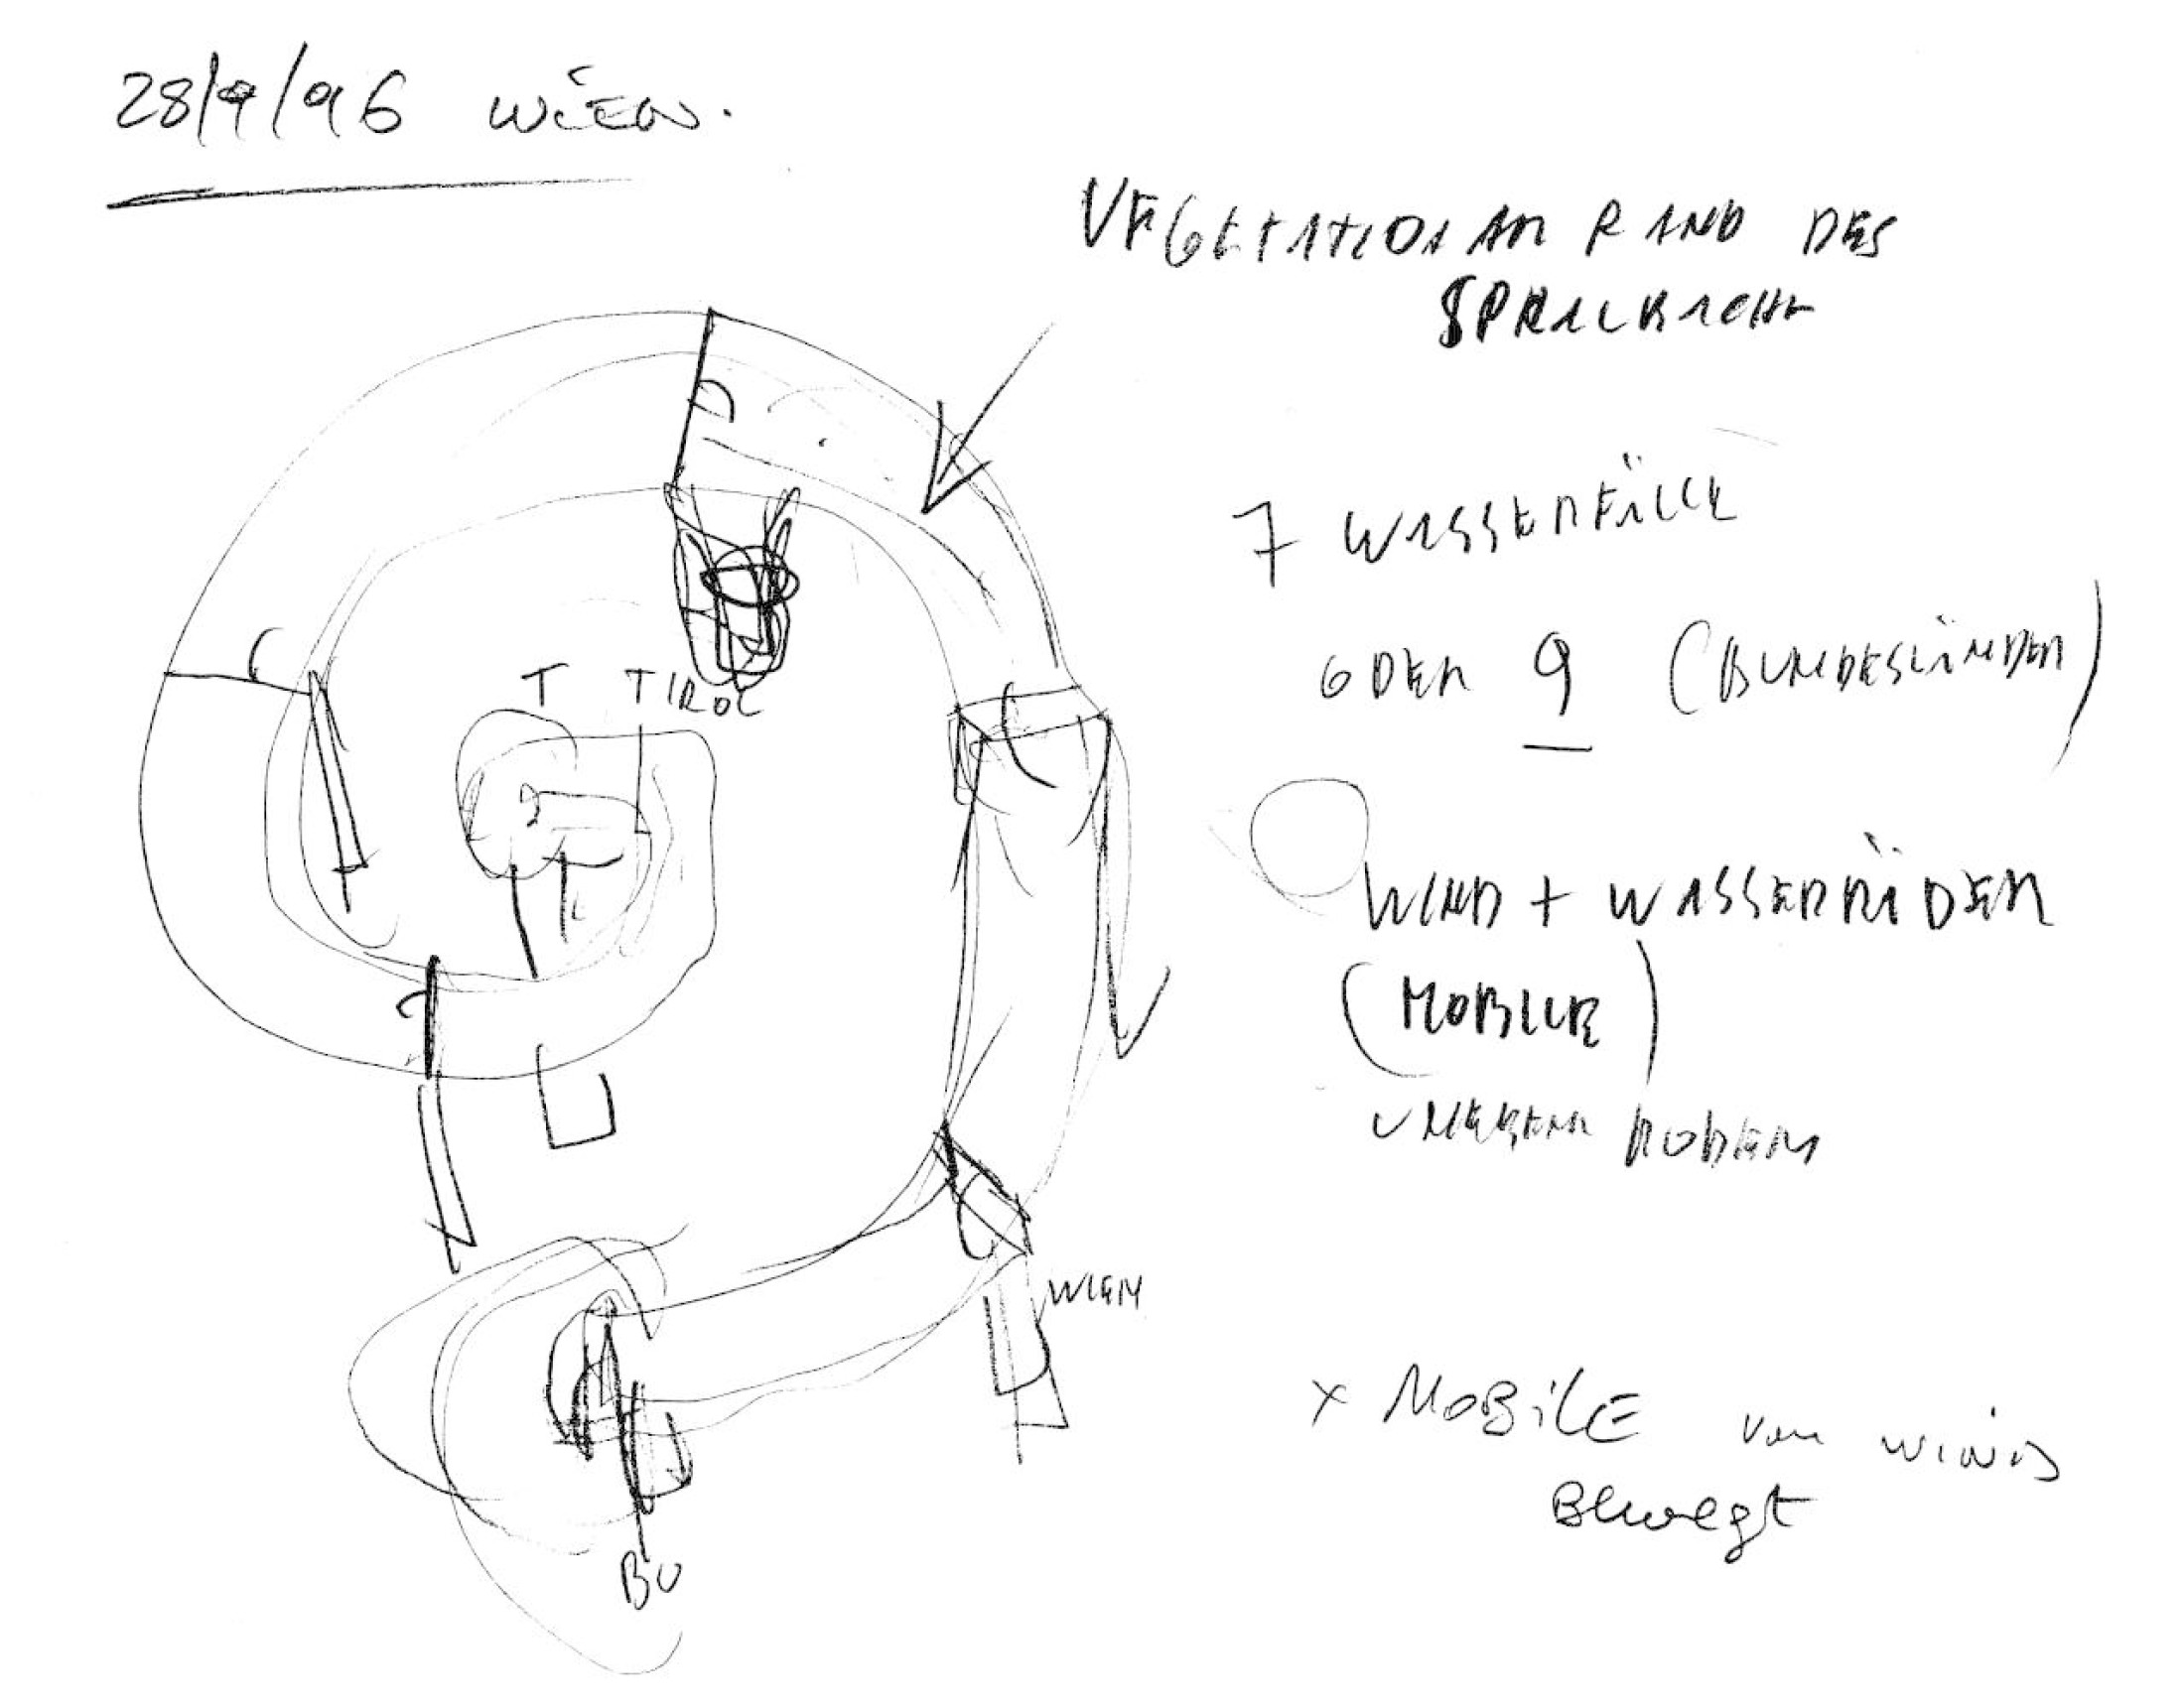 28/9/96 WIEN.
VEGETATION AM RAND DES
7 WASSERFÄLLE
ODER 9 (BUNDESLÄNDER)
T TIROL
WIND + WASSERRÄDER
(MOBILE)
WIEN
x MOBILE von WIND
Bewegt
BU